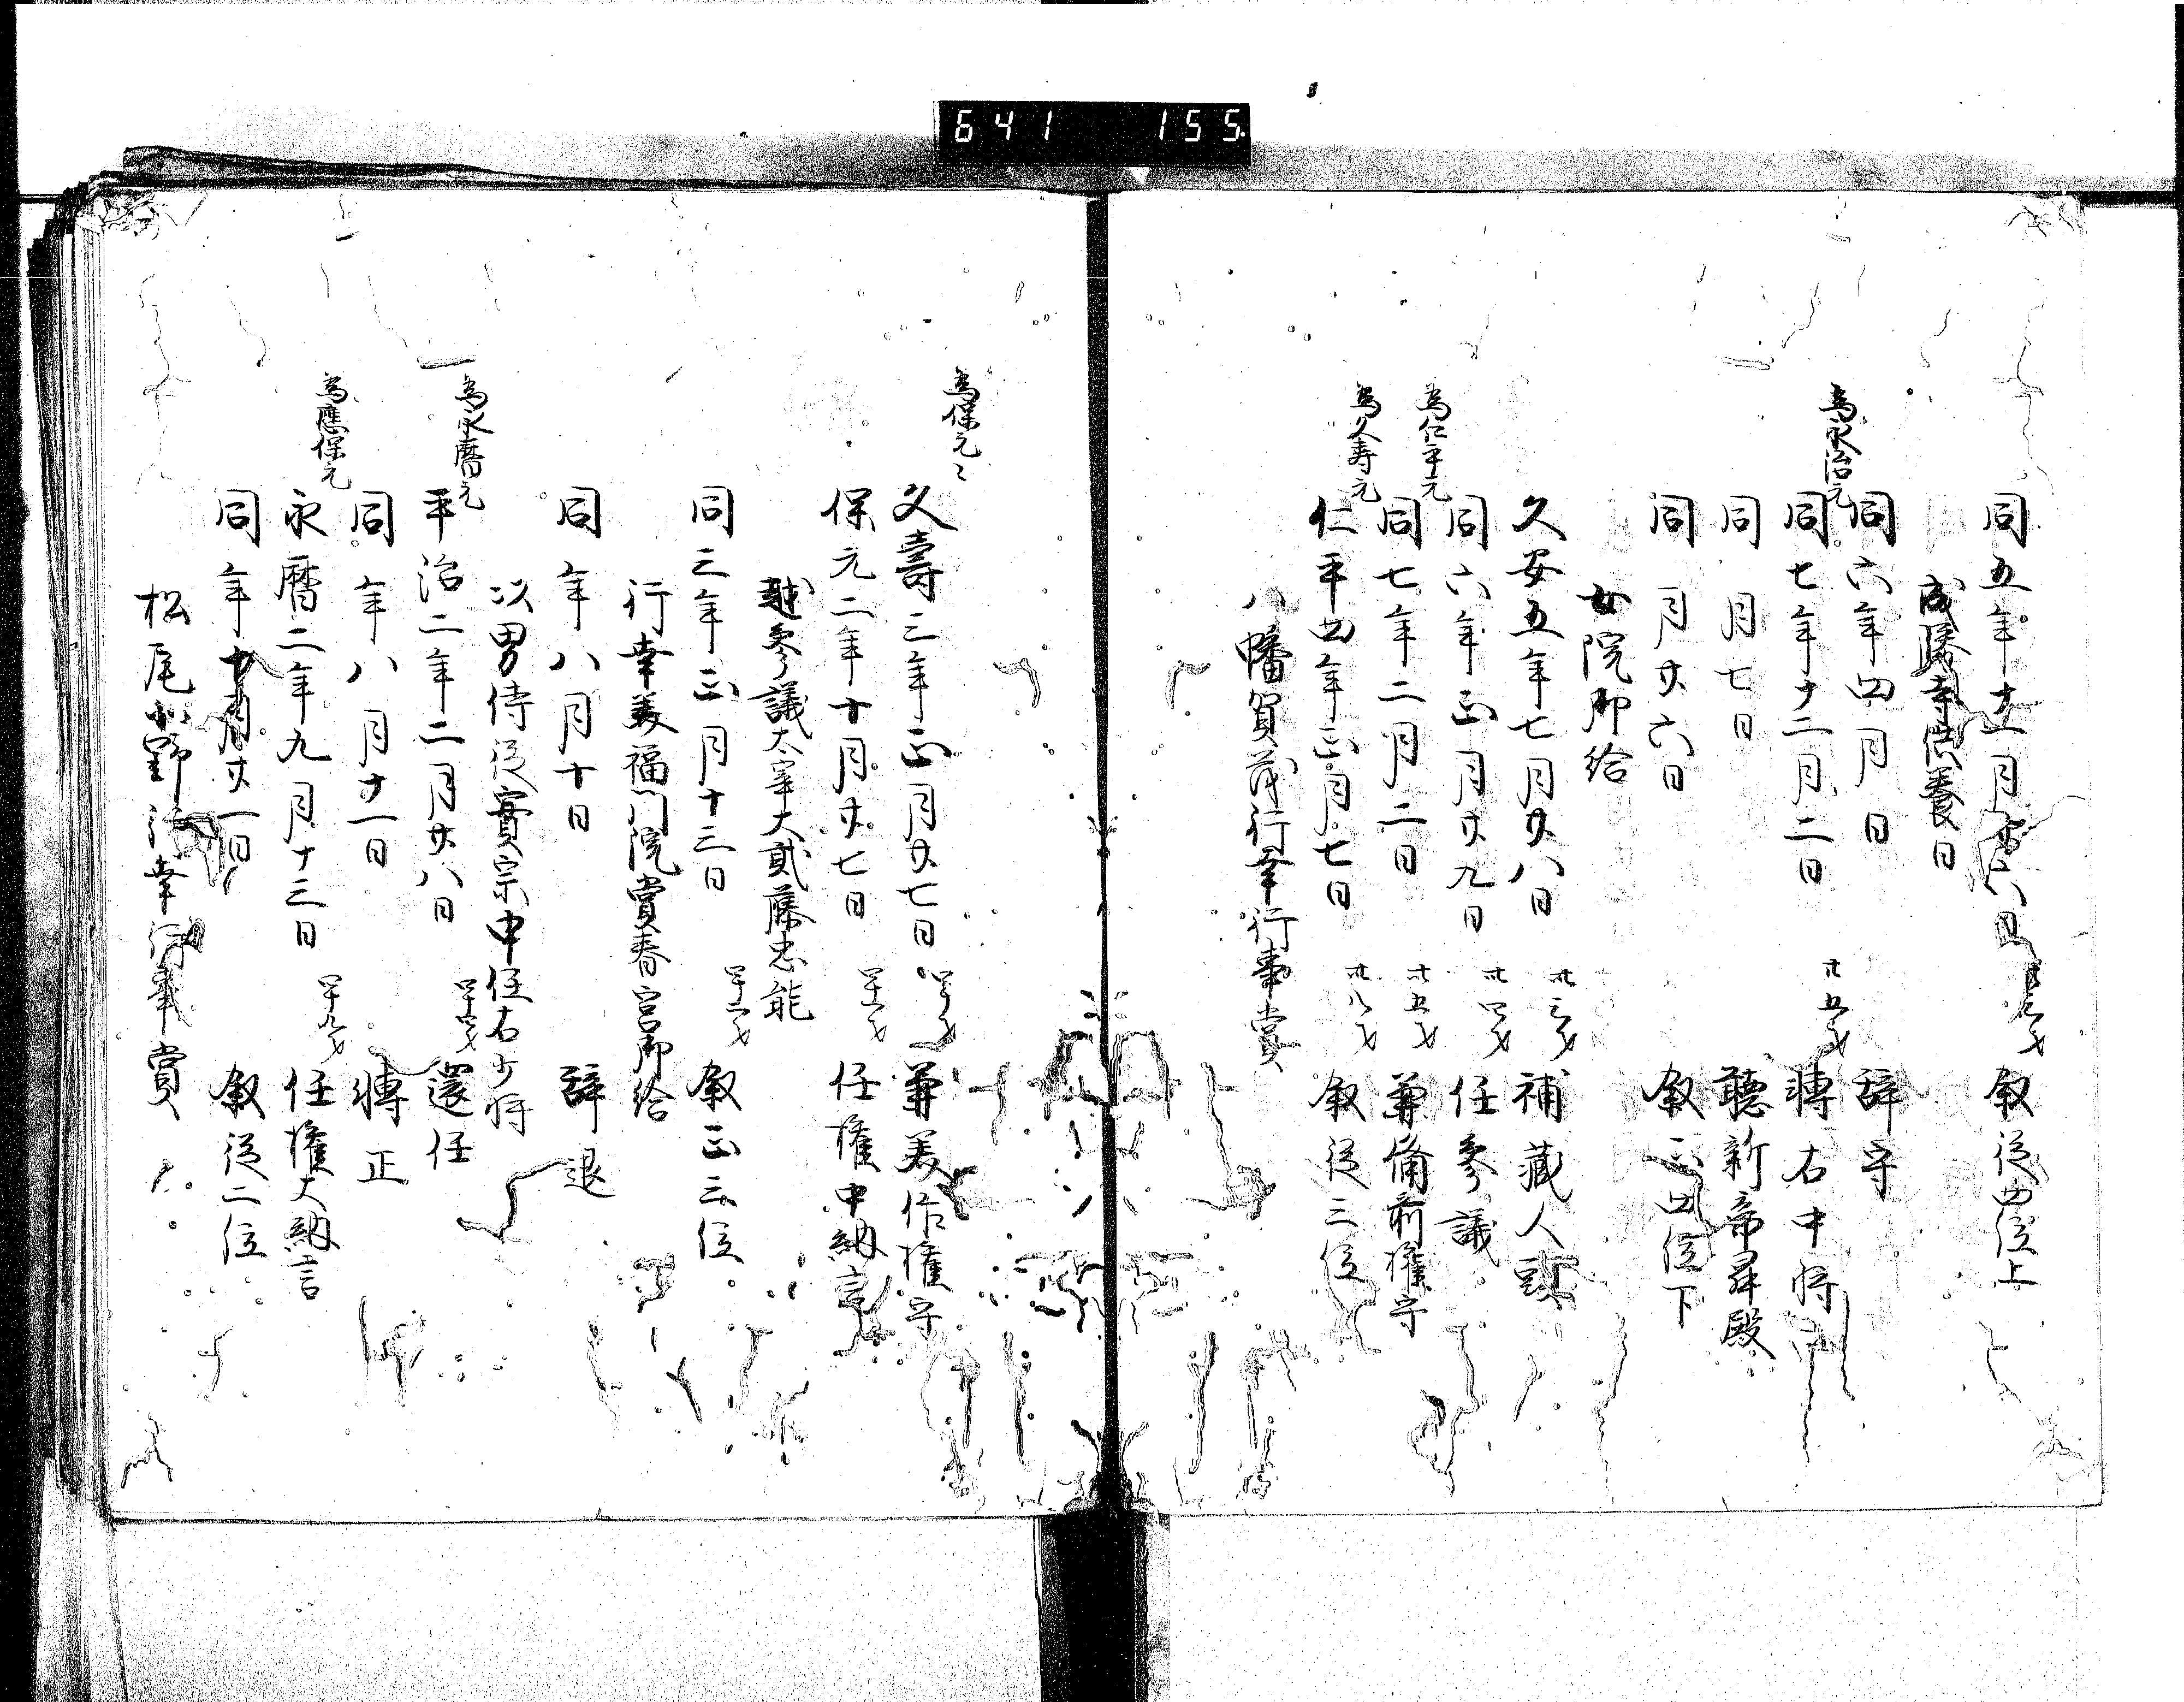 641 155
同五年十二月廿六日 叙従四位上
成勝寺供養日
同六年四月日 辞守
為永治元
同七年十二月二日 廿五才 轉右中将
同月七日 聴新帝昇殿
同月廿六日 叙正四位下
女院御給
久安五年七月廿八日 卅三才 補蔵人頭
同六年正月廿九日 卅四才 任参議
為仁平元
同七年二月二日 卅五才 兼備前権守
為久寿元
仁平四年正月七日 卅八才 叙従三位
八幡賀茂行幸行事賞
為保元〻
久壽三年正月廿七日 四十才 兼美作権守
保元二年十月廿七日 四十一才 任権中納言
越参議太宰大貳藤忠能
同三年正月十三日 四十二才 叙正三位
行幸美福門院賞春宮御給
同年八月十日 辞退
以男侍従實宗申任右少将
為永暦元
平治二年二月廿八日 四十四才 還任
同年八月十一日 轉正
為應保元
永暦二年九月十三日 四十九才 任権大納言
同年 月廿一日 叙従二位
松尾北野行幸行事賞